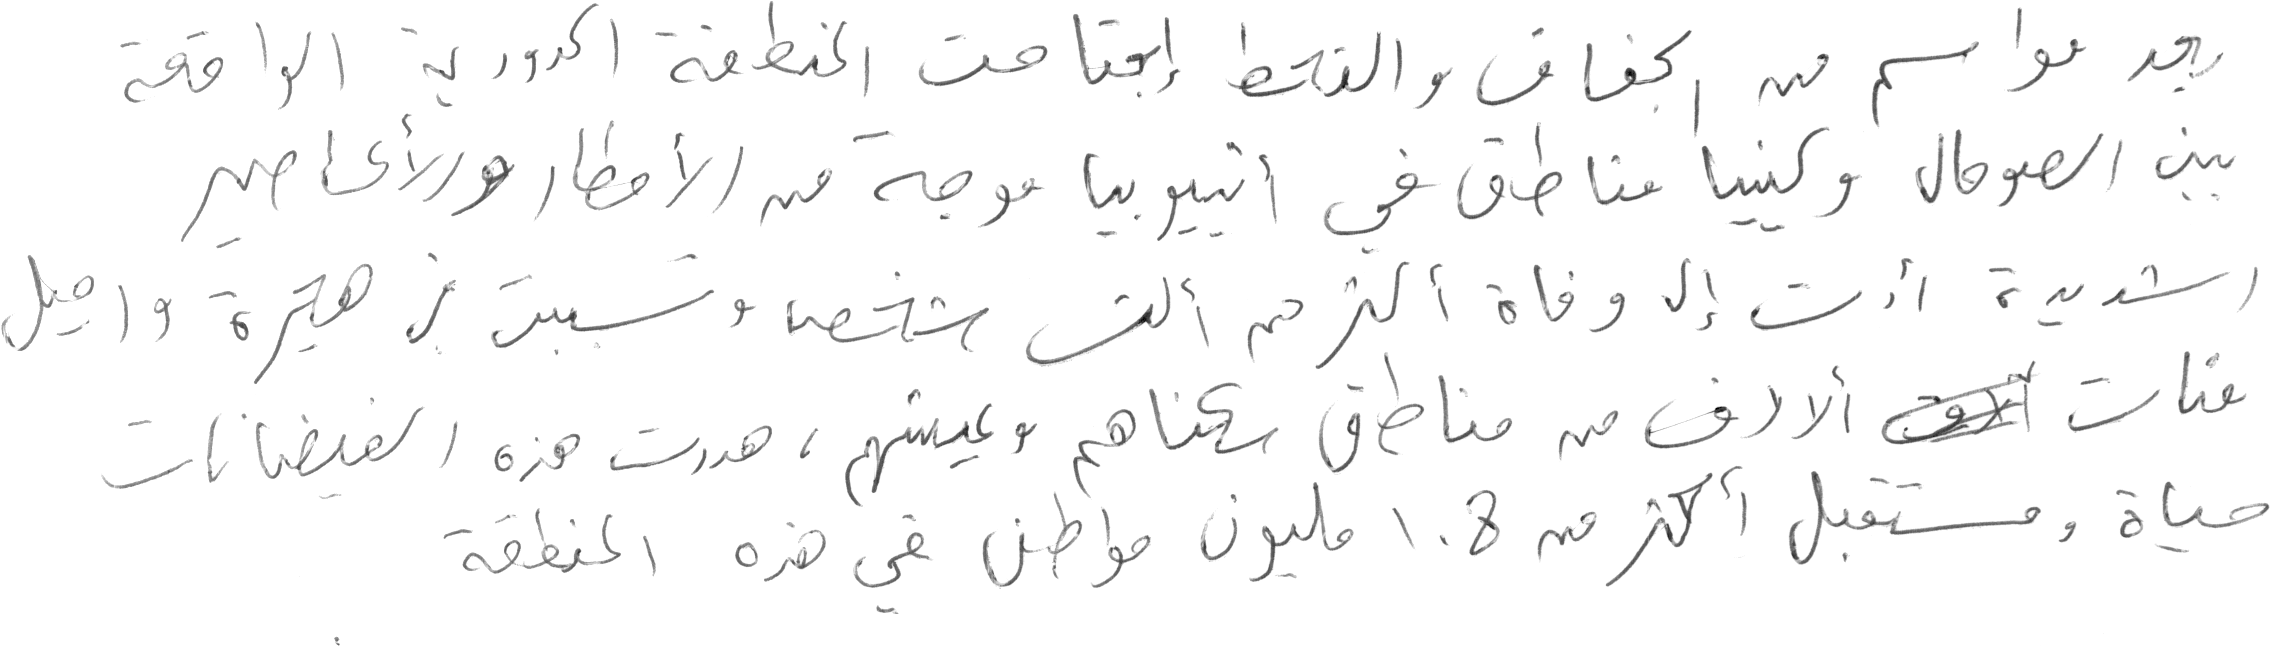 بعد مواسم من الجفاف والقحط إجتاحت المنطقة الحدودية الواقعة
بين الصومال وكينيا مناطق في أثيوبيا موجة من الأمطار والأعاصير
الشديدة أدت إلى وفاة أكثر من ألف شخص وتسببت في هجرة
مئات ألالاف من مناطق سكناهم وعيشهم، هددت هذه الفيضانات
حياة ومستقبل أكثر من 1.8 مليون مواطن في هذه المنطقة